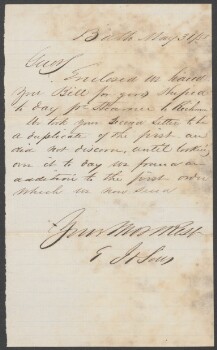 Bath May 30/
Enclosed we hand
you Bill for goods shipped
to day pr Steamer to
We took your letter to be
a duplicate of the first and
did not discover, until looking
over it to day we found an
addition to the first order
which we now send
Yours most Resp